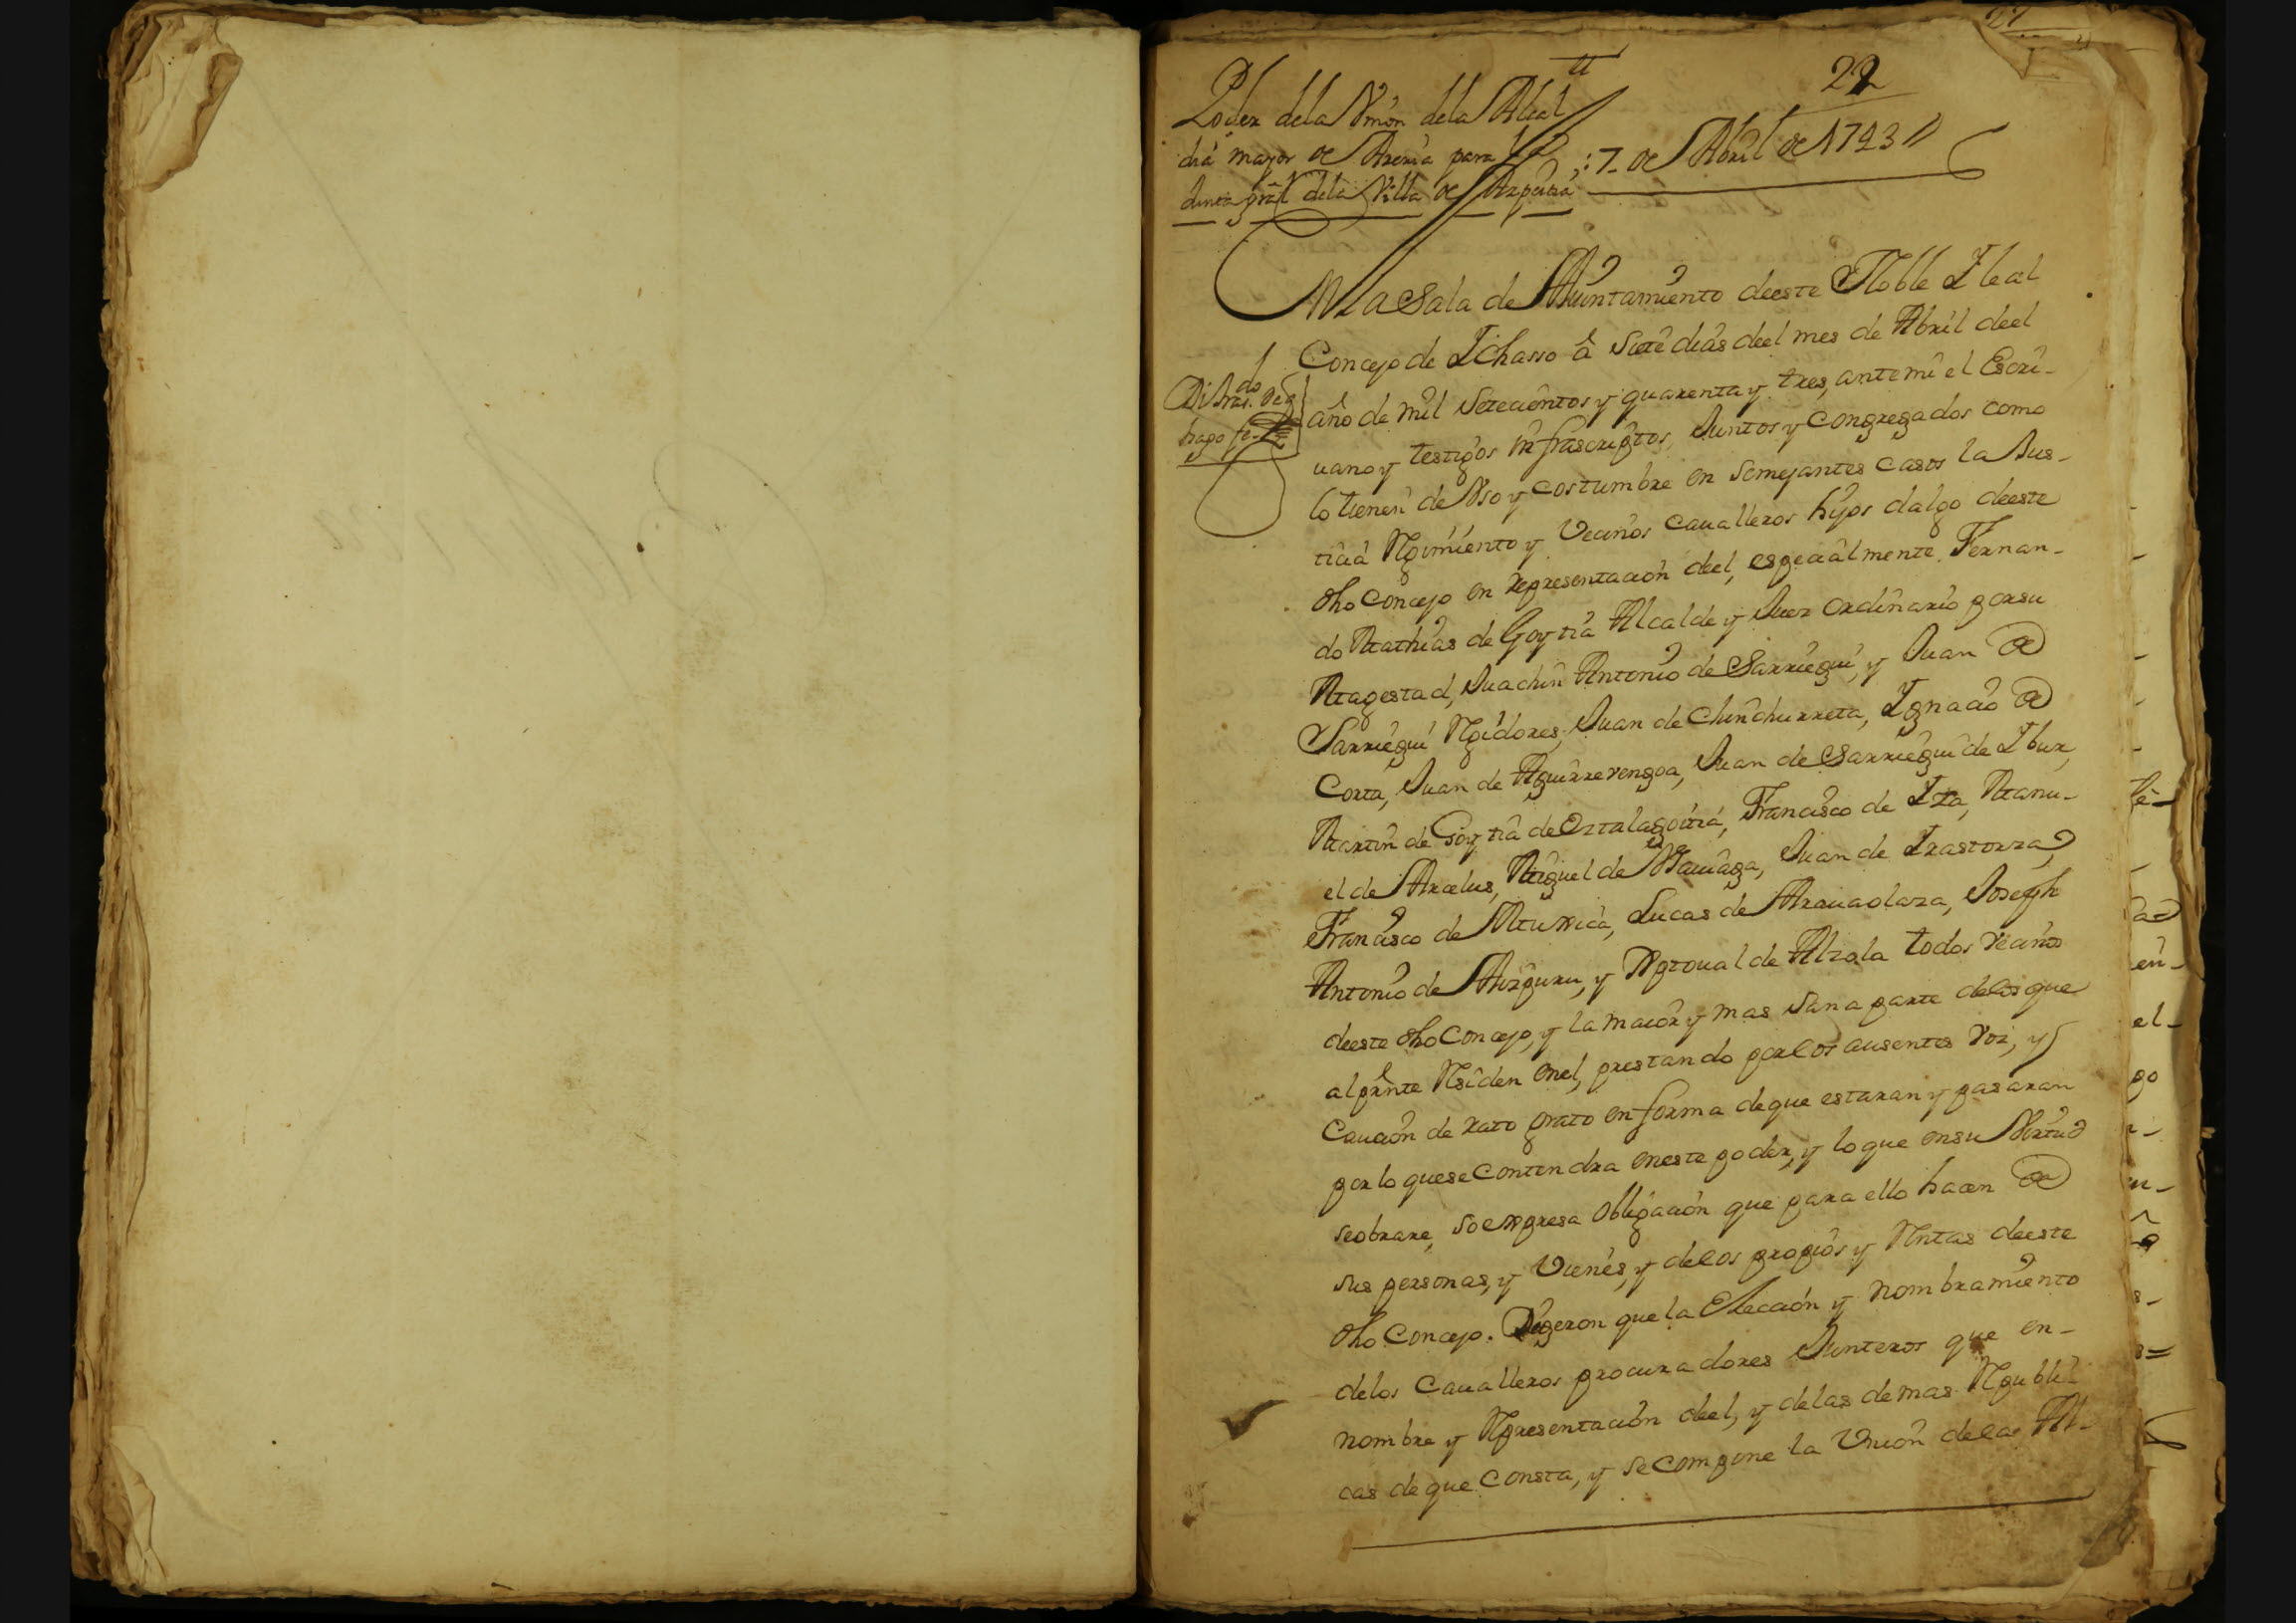 22
Poder dela Vnion dela Alcal
dia mayor de Areria para la
Junta gral dela Villa de Azpeitia
:7_ de Abril de 1743
En la Sala de Aiuntamiento deeste Noble Y leal
Concejo de Ychasso â siete dias deel mes de Abril deel
año de mil setecientos y quarenta y tres, ante mi el Escri-
uano y testigos infrascriptos, Juntos y Congregados como
lo tienen de Vso y costumbre en semejantes casos la Jus-
ticia Regimiento y Vecinos caualleros hijos dalgo deeste
dho Concejo en representacion deel, especialmente Fernan-
do Mathias de Goytia Alcalde y Juez ordinario por su
Magestad, Juachin Antonio de Sarriegui, y Juan de
Sarriegui Regidores, Juan de Chinchurreta, Ygnacio de
Corta, Juan de Aguirrevengoa, Juan de Sarriegui de Ybur,
Martin de Goytia de Oztalagoitia, Francisco de Yza, Manu-
el de Arcelus, Miguel de Mauiaga, Juan de Yrastorza,
Francisco de Murrica, Lucas de Arauaolaza, Joseph
Antonio de Aizpuru, y Xptoual de Alzola todos vecinos
deeste dho Concejo, y la maior y mas sana parte delos que
al prnte Residen en el, prestando por los ausentes voz, y
Caucion de rato grato en forma de que estaran y pasaran
por lo que se Contendra en este poder, y lo que en su Virtud
se obrare, so expresa obligacion que para ello hacen de
sus personas, y Vienes, y delos propios y Rentas deeste
dho Concejo. Digeron que la Eleccion y nombramiento
delos Caualleros procuradores Junteros que en-
nombre y Representacion deel, y delas demas Republi-
cas de que Consta, y se compone la Vnion dela Al-
hago fe